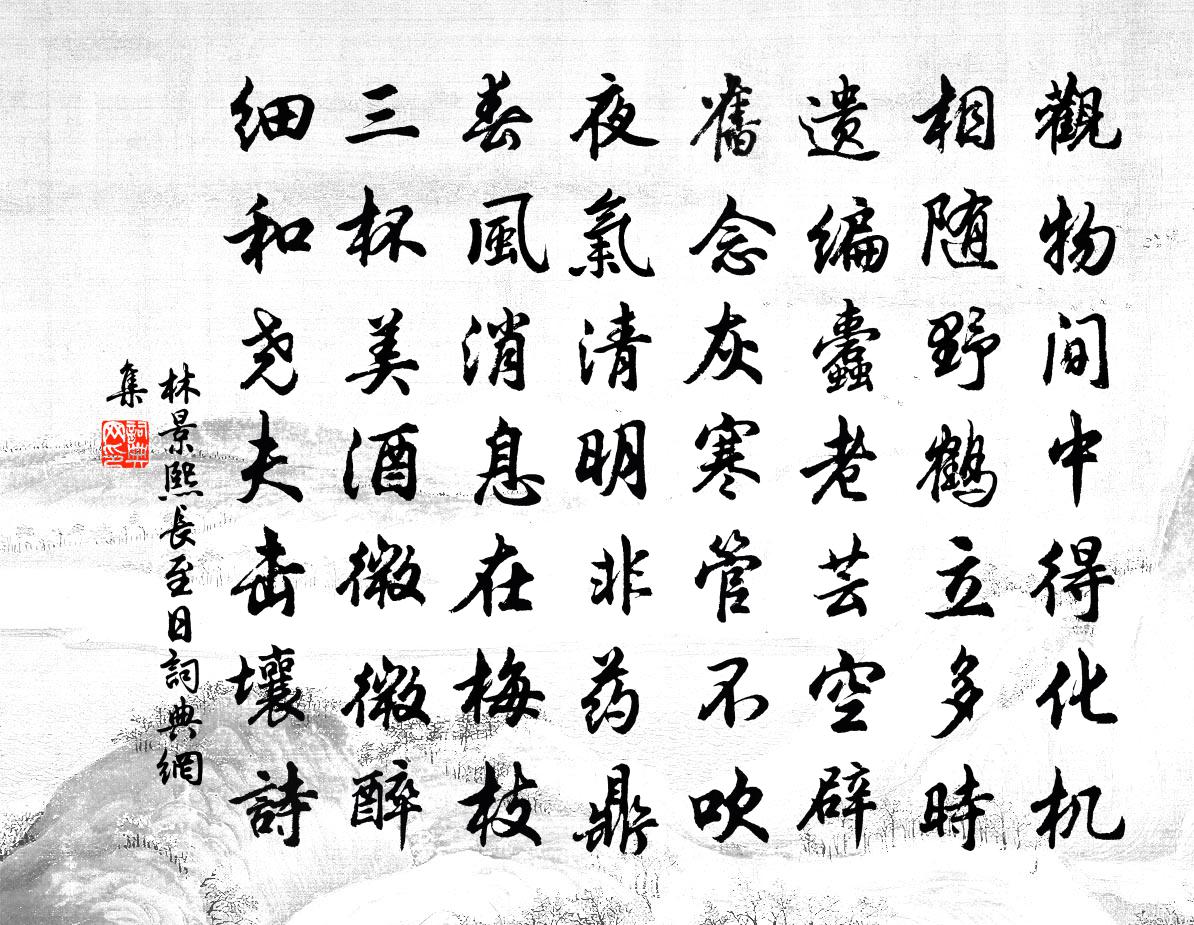 觀物间中得化机
相随野鹤立多時
遗编蠹老芸空辟
舊念灰寒管不吹
夜氣清明非药鼎
春風消息在梅枝
三杯美酒微微醉
细和尧夫击壤詩
林景熙長至日詞典網
集
詞典网印